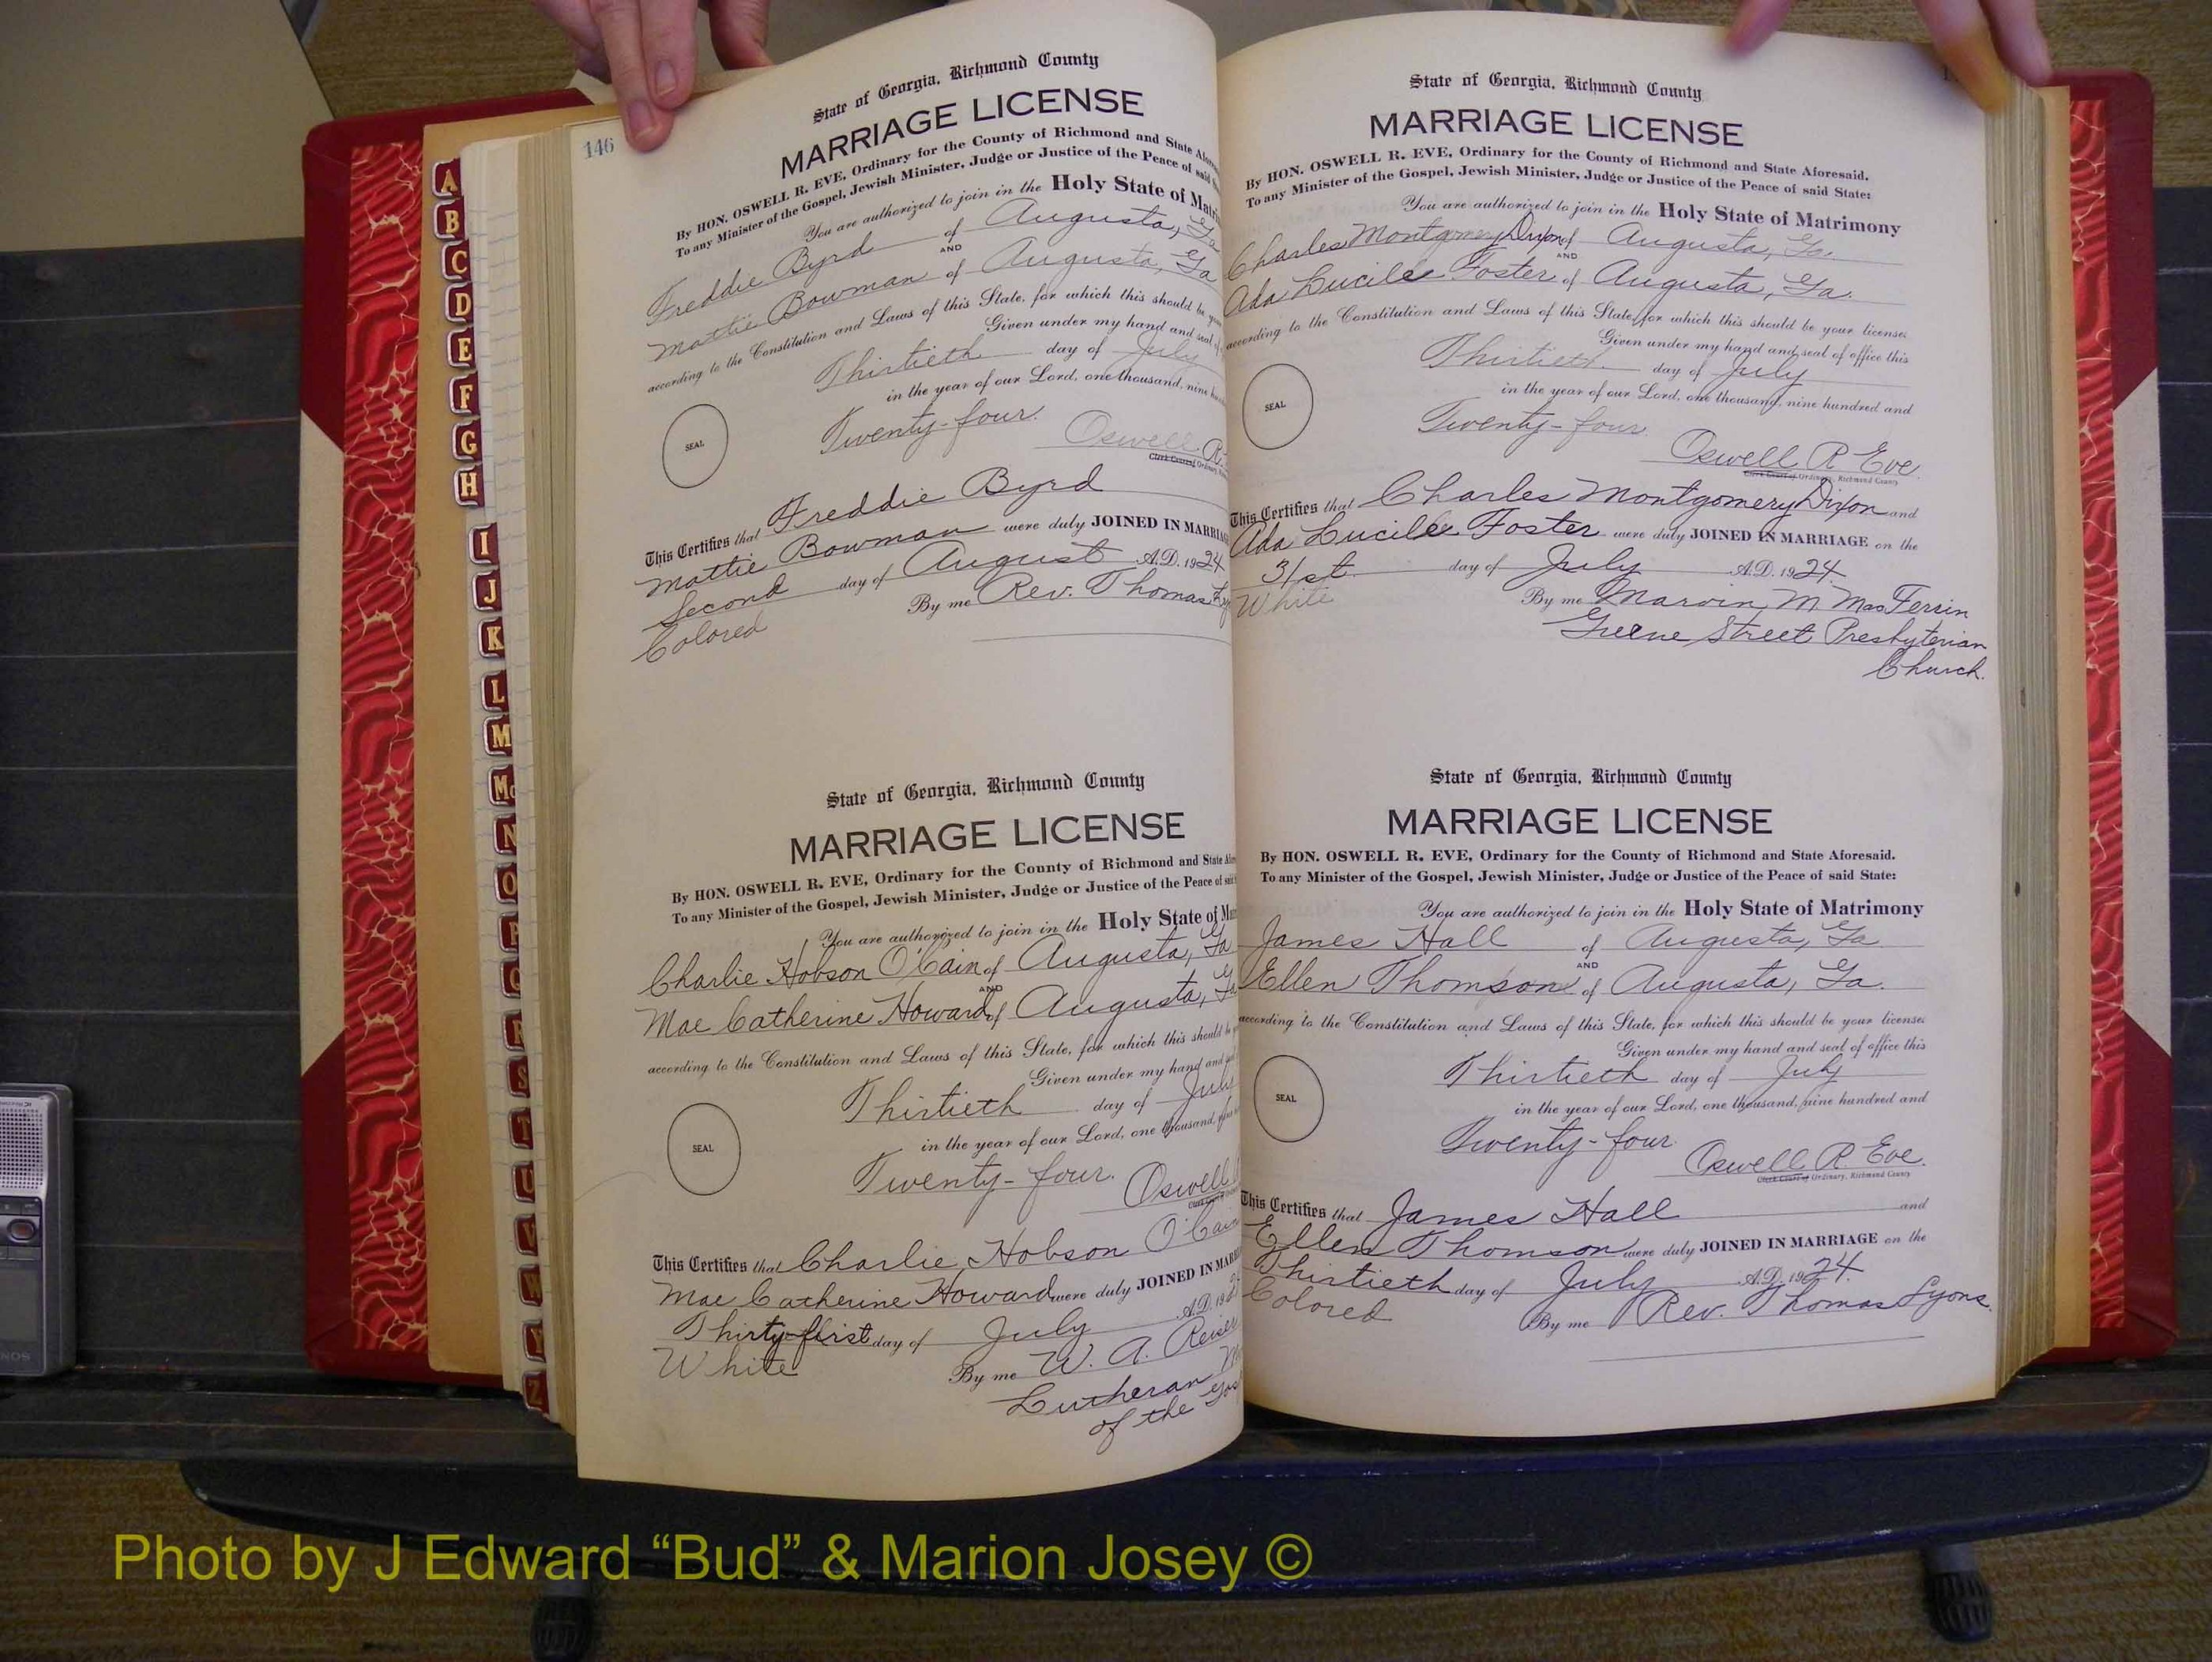 146
State of Georgia, Richmond County
MARRIAGE LICENSE
By HON. OSWELL R. EVE, Ordinary for the County of Richmond and State
To any Minister of the Gospel, Jewish Minister, Judge or Justice of the Peace of said
You are authorized to join in the Holy State of
Freddie Byrd of Augusta, Ga
AND
Mattie Bowman of Augusta, Ga
according to the Constitution and Laws of this State, for which this should be
Given under my hand and seal of
Thirtieth day of July
in the year of our Lord, one thousand, nine
Twenty-four.
SEAL
Oswell R.
Clerk Court of Ordinary,
This Certifies that Freddie Byrd
Mattie Bowman were duly JOINED IN
Second day of August A.D. 1924
Colored By me Rev. Thomas
State of Georgia, Richmond County
MARRIAGE LICENSE
By HON. OSWELL R. EVE, Ordinary for the County of Richmond and State
To any Minister of the Gospel, Jewish Minister, Judge or Justice of the Peace of
You are authorized to join in the Holy State of
Charlie Hobson O'Cain of Augusta, Ga
AND
Mae Catherine Howard of Augusta,
according to the Constitution and Laws of this State, for which this should
Given under my hand and
Thirtieth day of July
in the year of our Lord, one thousand,
Twenty-four.
SEAL
Oswell
This Certifies that Charlie Hobson O'Cain
Mae Catherine Howard were duly JOINED IN
Thirty-first day of July A.D. 19
White By me W. A. Reiser
Lutheran
of the
State of Georgia, Richmond County
MARRIAGE LICENSE
By HON. OSWELL R. EVE, Ordinary for the County of Richmond and State Aforesaid.
To any Minister of the Gospel, Jewish Minister, Judge or Justice of the Peace of said State:
You are authorized to join in the Holy State of Matrimony
Charles Montgomery Dixon of Augusta, Ga.
AND
Ada Lucile Foster of Augusta, Ga.
according to the Constitution and Laws of this State, for which this should be your license.
Given under my hand and seal of office this
Thirtieth day of July
in the year of our Lord, one thousand, nine hundred and
Twenty-four
SEAL
Oswell R Eve
Clerk Court of Ordinary, Richmond County
This Certifies that Charles Montgomery Dixon and
Ada Lucile Foster were duly JOINED IN MARRIAGE on the
31st day of July A.D. 1924
White By me Marvin M MacFerrin
Greene Street Presbyterian
Church.
State of Georgia, Richmond County
MARRIAGE LICENSE
By HON. OSWELL R. EVE, Ordinary for the County of Richmond and State Aforesaid.
To any Minister of the Gospel, Jewish Minister, Judge or Justice of the Peace of said State:
You are authorized to join in the Holy State of Matrimony
James Hall of Augusta, Ga
AND
Ellen Thomson of Augusta, Ga.
according to the Constitution and Laws of this State, for which this should be your license.
Given under my hand and seal of office this
Thirtieth day of July
in the year of our Lord, one thousand, nine hundred and
Twenty-four
SEAL
Oswell R. Eve.
Clerk Court of Ordinary, Richmond County
This Certifies that James Hall and
Ellen Thomson were duly JOINED IN MARRIAGE on the
Thirtieth day of July A.D. 1924.
Colored By me Rev. Thomas Lyons.
A
B
C
D
E
F
G
H
I
J
K
L
M
Mc
N
O
P
Q
R
S
T
U
V
W
Y
Z
Photo by J Edward “Bud” & Marion Josey ©